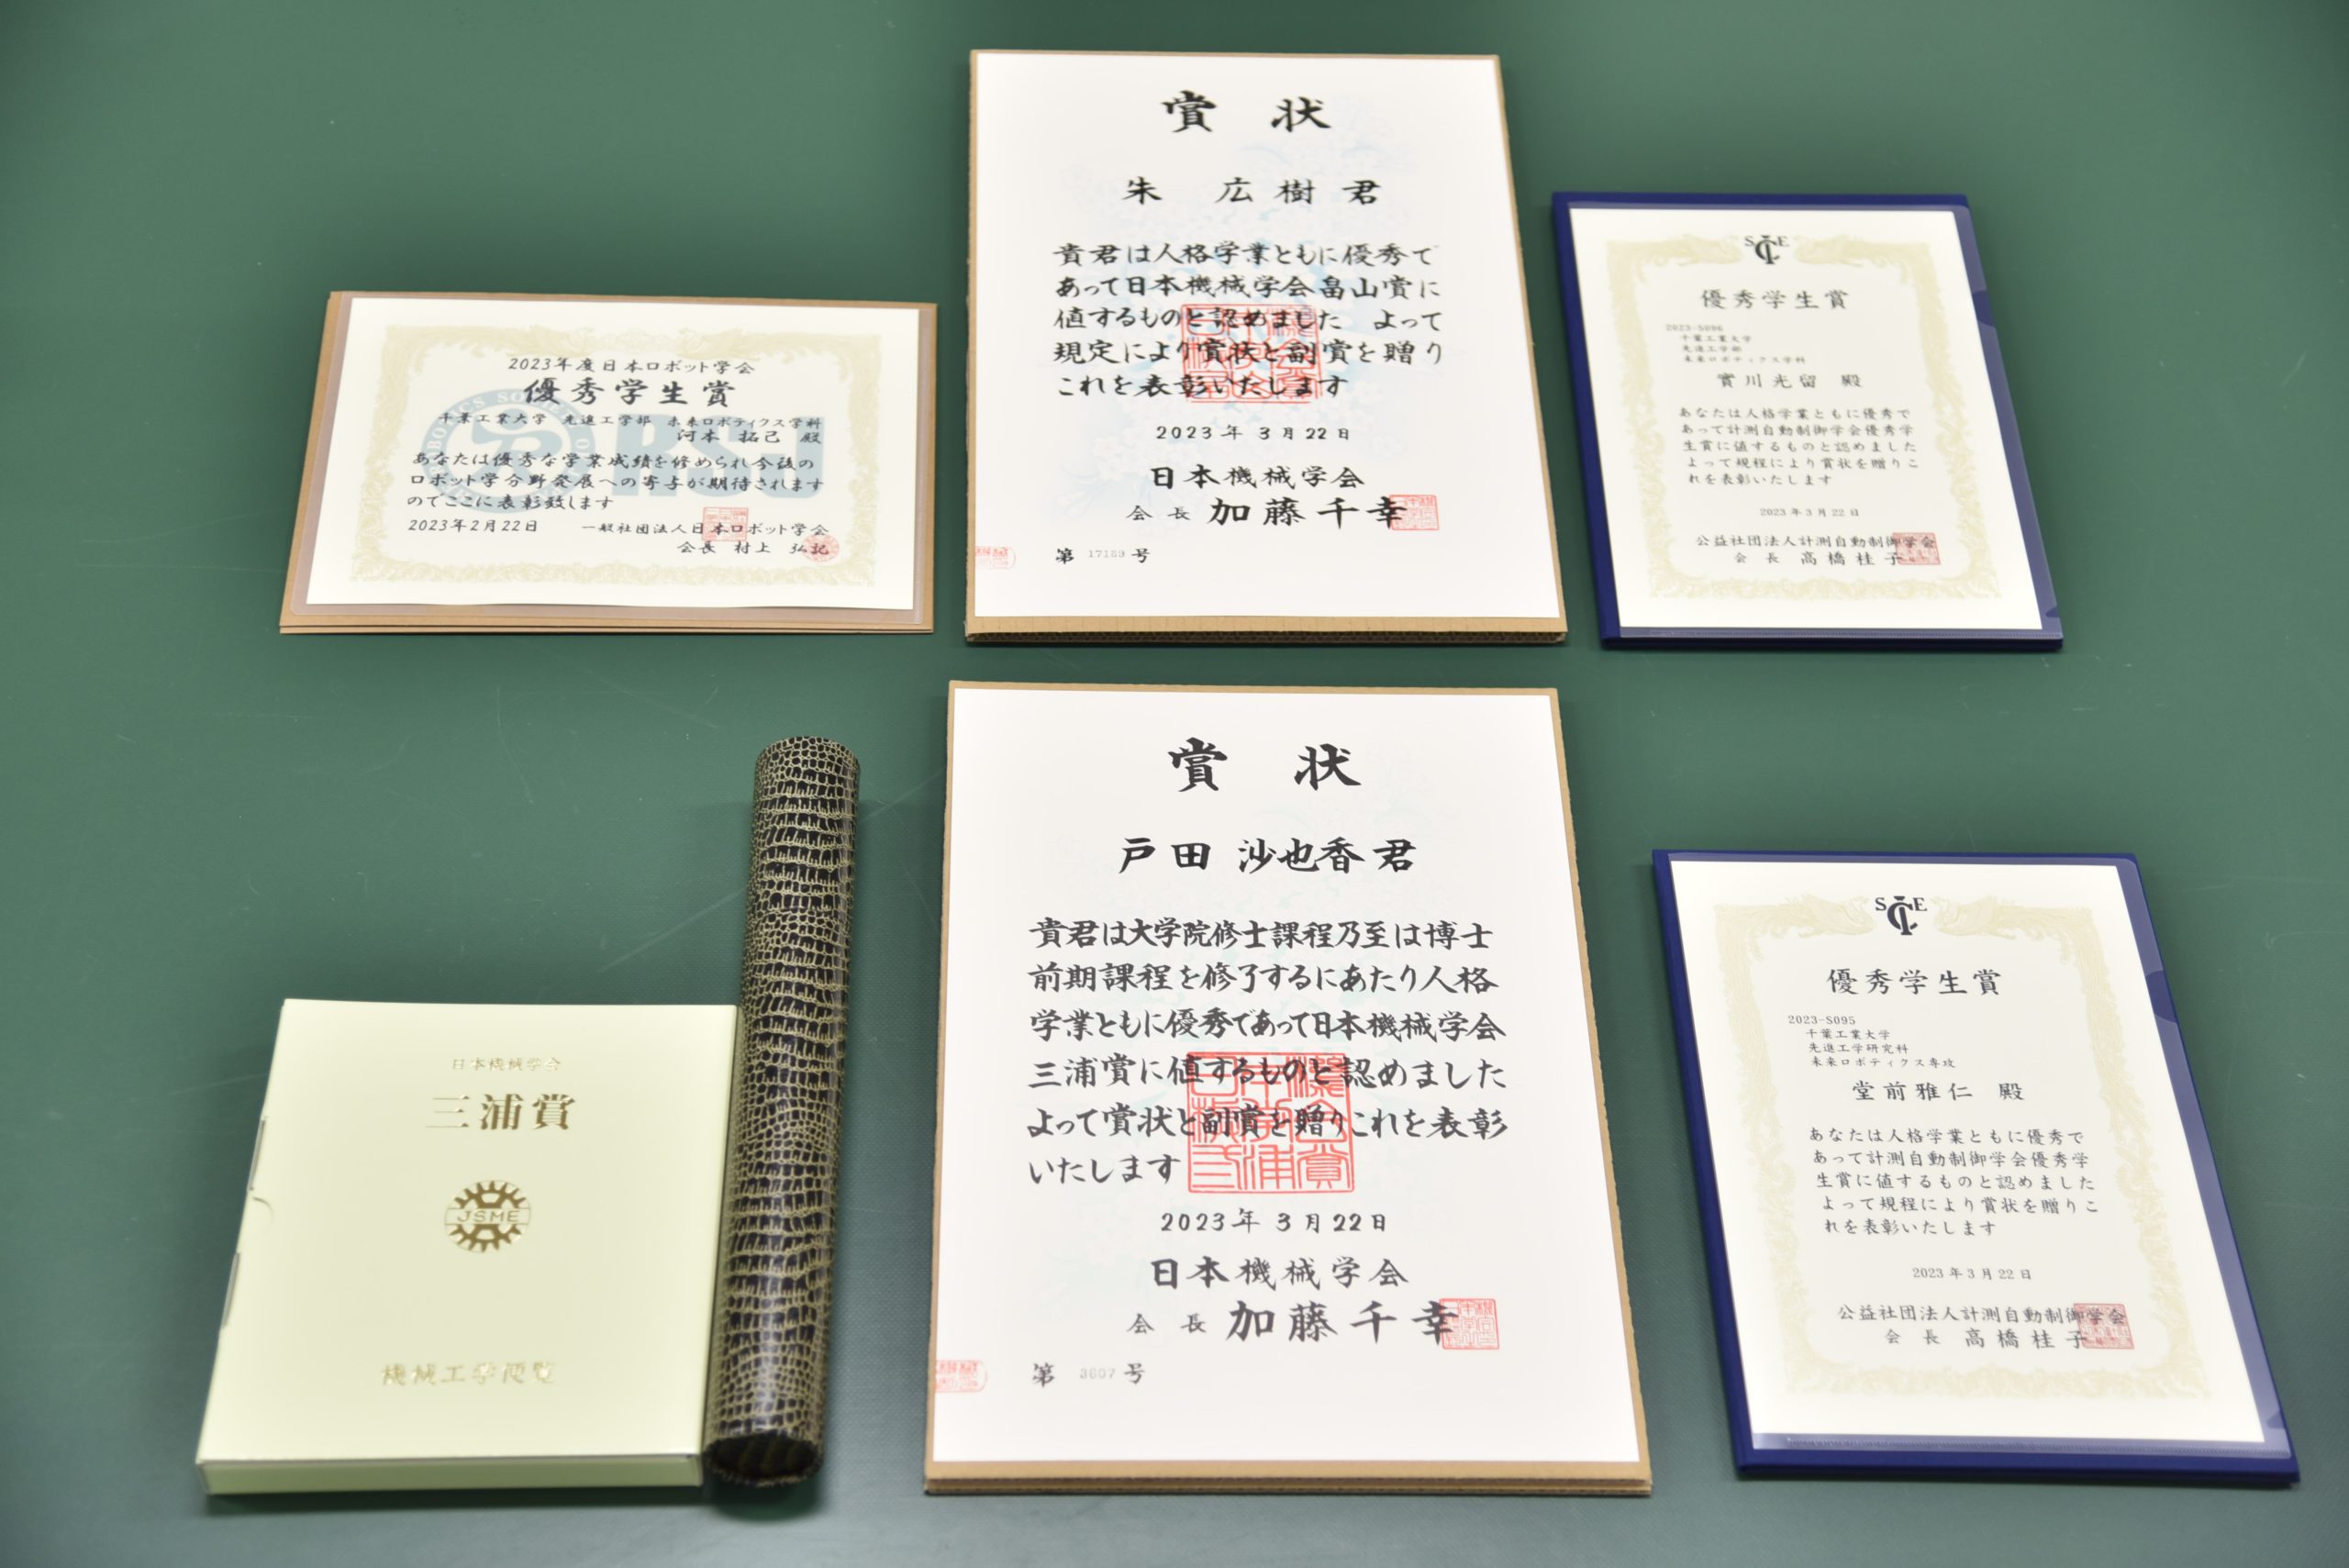 2023年度日本ロボット学会
優秀学生賞
千葉工業大学 先進工学部 未来ロボティクス学科
河本 拓己 殿
あなたは優秀な学業成績を修められ今後の
ロボット学分野発展への寄与が期待されます
のでここに表彰致します
2023年2月22日 一般社団法人日本ロボット学会
会長 村上 弘記
RSJ
賞 状
朱 広樹君
貴君は人格学業ともに優秀で
あって日本機械学会畠山賞に
値するものと認めました よって
規定により賞状と副賞を贈り
これを表彰いたします
2023年3月22日
日本機械学会
会長 加藤千幸
第 17189 号
SICE
優秀学生賞
2023-S096
千葉工業大学
先進工学部
未来ロボティクス学科
實川光留 殿
あなたは人格学業ともに優秀で
あって計測自動制御学会優秀学
生賞に値するものと認めました
よって規程により賞状を贈りこ
れを表彰いたします
2023年3月22日
公益社団法人計測自動制御学会
会 長 高橋桂子
日本機械学会
三浦賞
JSME
機械工学便覧
賞 状
戸田 沙也香君
貴君は大学院修士課程乃至は博士
前期課程を修了するにあたり人格
学業ともに優秀であって日本機械学会
三浦賞に値するものと認めました
よって賞状と副賞を贈りこれを表彰
いたします
2023年3月22日
日本機械学会
会長 加藤千幸
第 3607 号
SICE
優秀学生賞
2023-S095
千葉工業大学
先進工学研究科
未来ロボティクス専攻
堂前雅仁 殿
あなたは人格学業ともに優秀で
あって計測自動制御学会優秀学
生賞に値するものと認めました
よって規程により賞状を贈りこ
れを表彰いたします
2023年3月22日
公益社団法人計測自動制御学会
会 長 高橋桂子